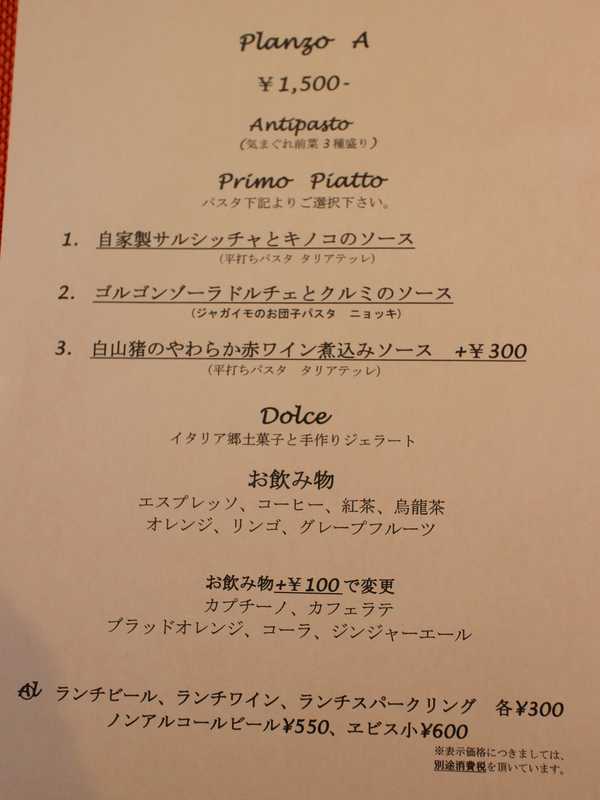 Planzo A
￥1,500-
Antipasto
(気まぐれ前菜 3 種盛り)
Primo Piatto
パスタ下記よりご選択下さい。
1. 自家製サルシッチャとキノコのソース
(平打ちパスタ タリアテッレ)
2. ゴルゴンゾーラドルチェとクルミのソース
(ジャガイモのお団子パスタ ニョッキ)
3. 白山猪のやわらか赤ワイン煮込みソース +￥300
(平打ちパスタ タリアテッレ)
Dolce
イタリア郷土菓子と手作りジェラート
お飲み物
エスプレッソ、コーヒー、紅茶、烏龍茶
オレンジ、リンゴ、グレープフルーツ
お飲み物+￥100で変更
カプチーノ、カフェラテ
ブラッドオレンジ、コーラ、ジンジャーエール
Al ランチビール、ランチワイン、ランチスパークリング 各¥300
ノンアルコールビール¥550、ヱビス小¥600
※表示価格につきましては、
別途消費税を頂いています。